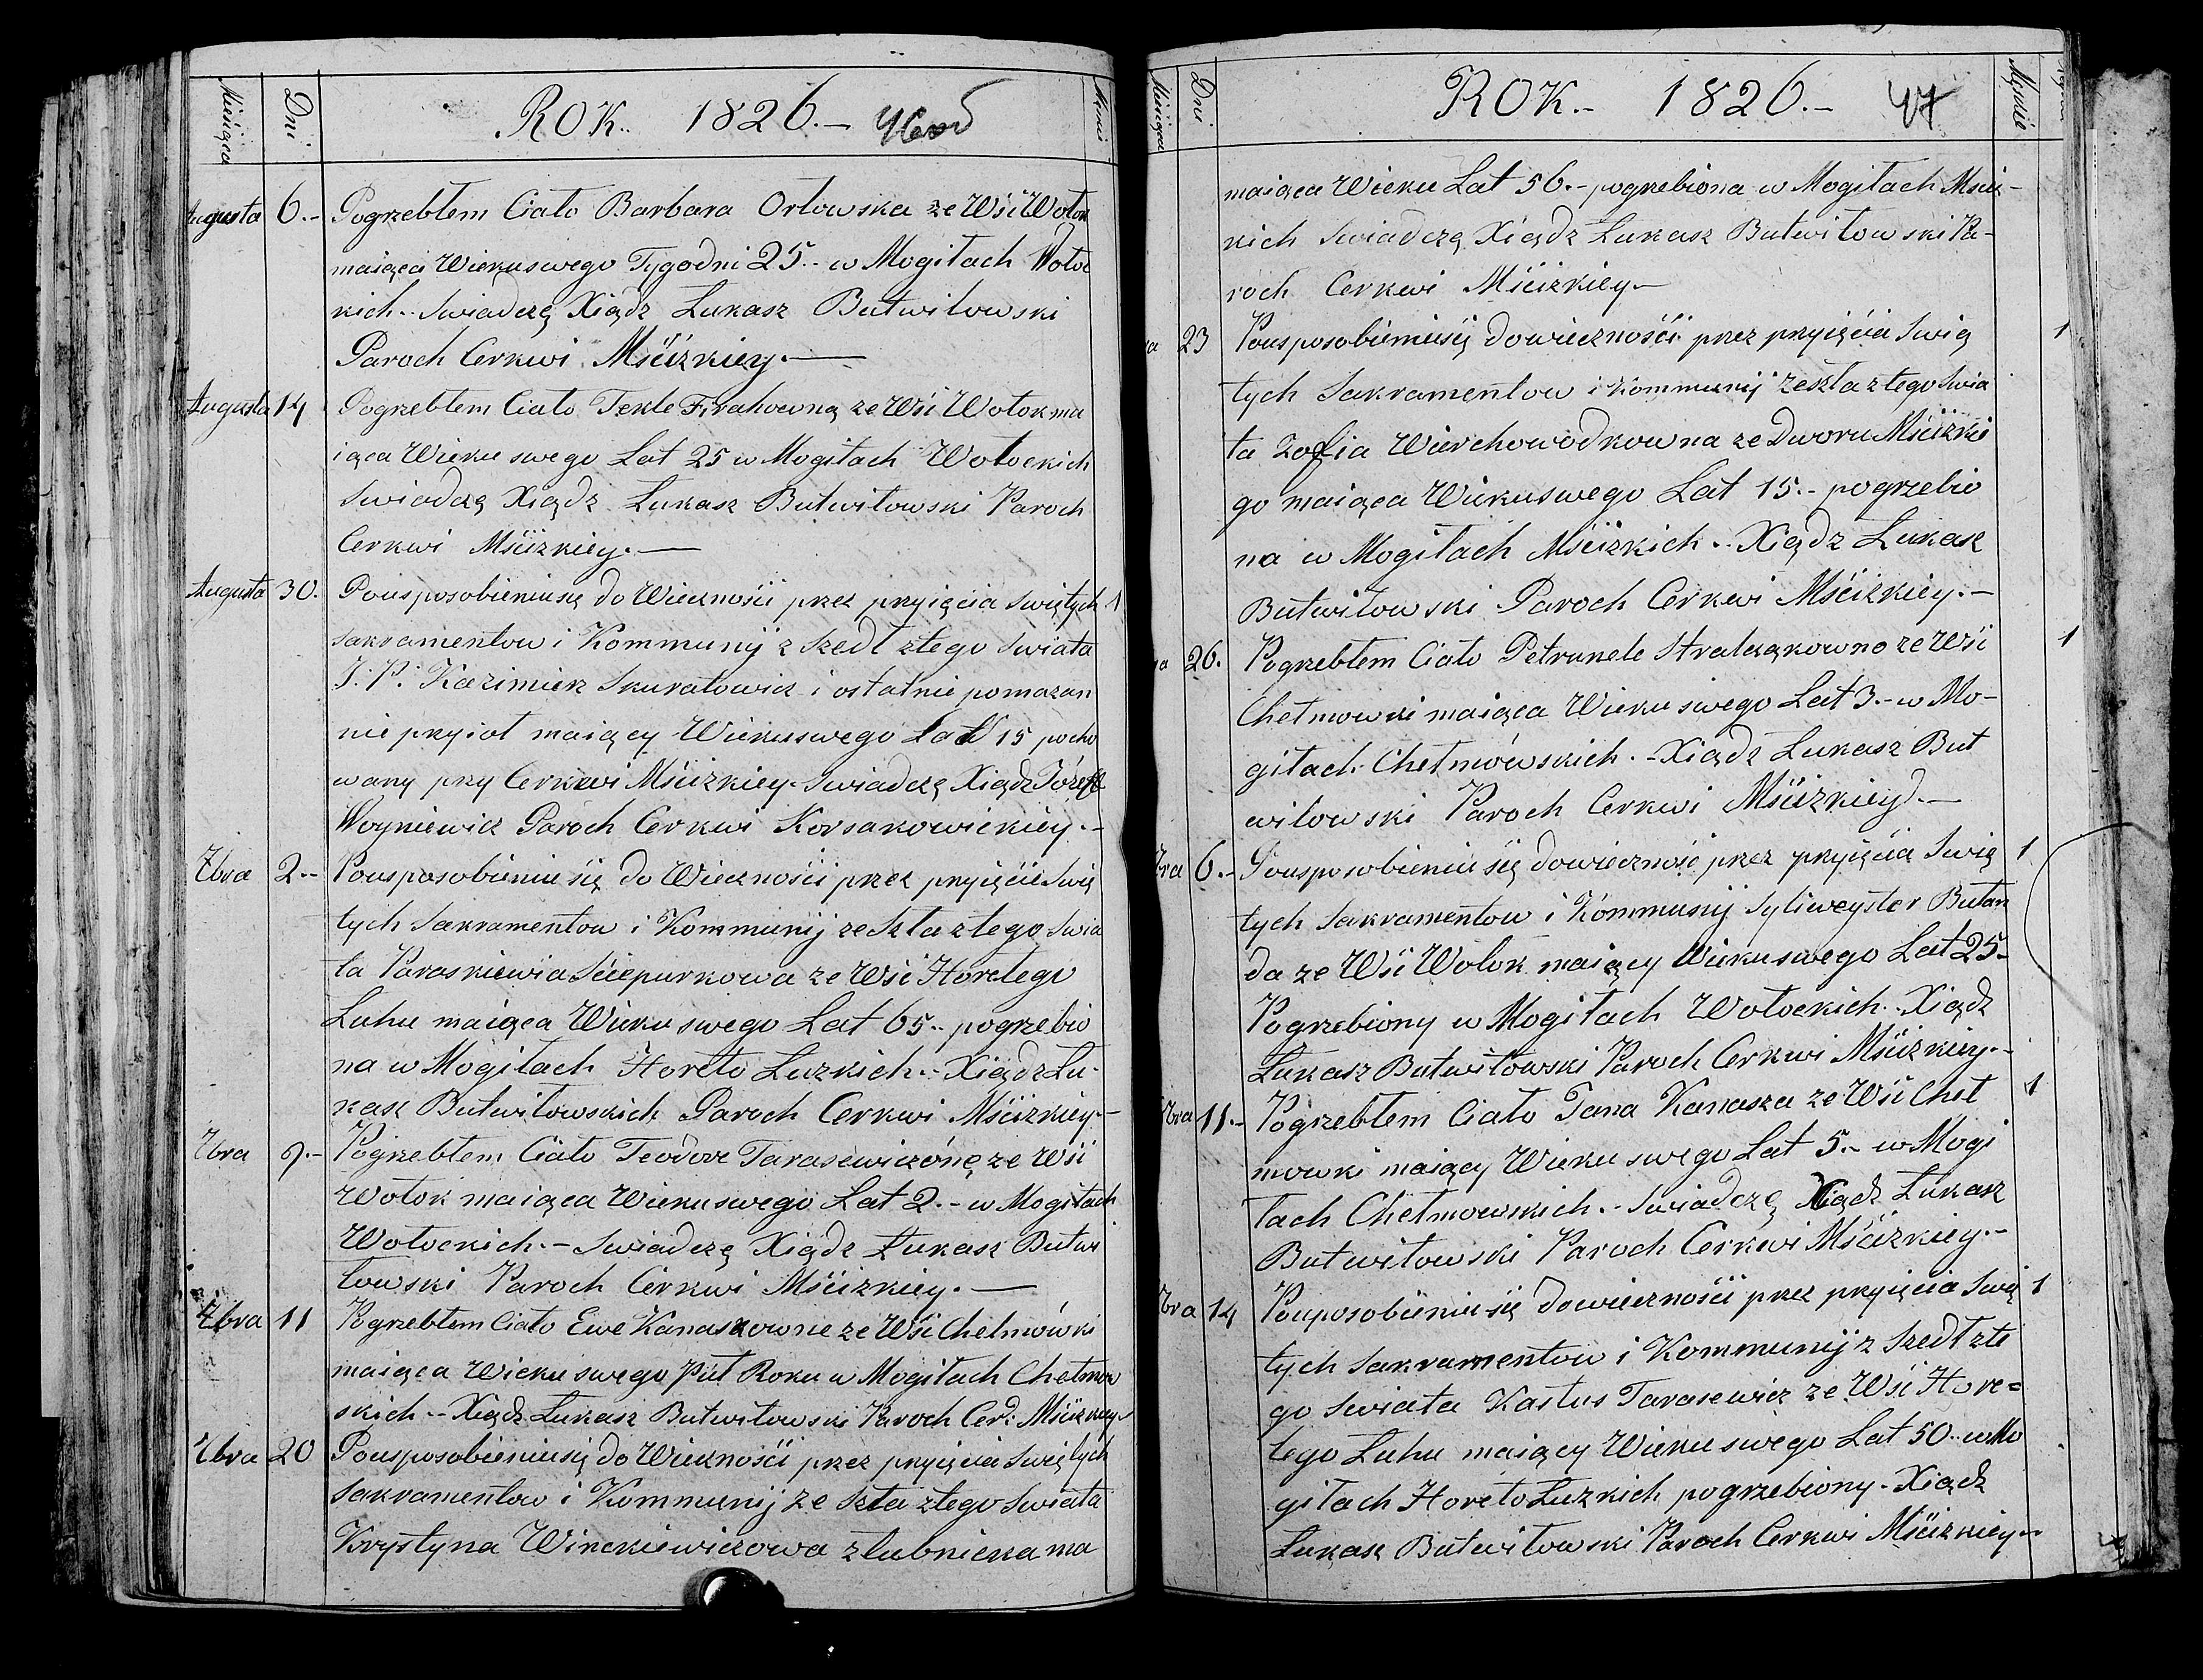 Miesiąca Dni ROK.. 1826.- 46od
Augusta 6.- Pogrzebłem Ciało Barbara Orłowska ze Wsi Wołok
maiąca Wieku swego Tygodni 25.- w Mogiłach Wołoc
kich.- Swiadczę Xiądz Łukasz Butwiłowski
Paroch Cerkwi Mścizkiey.—
Augusta 14 Pogrzebłem Ciało Tekle ze Wsi Wołok ma
iąca Wieku swego Lat 25 w Mogiłach Wołockich
Swiadczę Xiądz Łukasz Butwiłowski Paroch
Cerkwi Mścizkiey.—
Augusta 30. Pousposobieniusię do Wiecznośći przez pryięcia Swiętych 1
sakramentow i Kommunij z szedł ztego Swiata
J. P. Kazimierz Skuratowicz i ostatnie pomazan
nie pryioł maiący Wiekuswego Lat 15 pocho
wany przy Cerkwi Mścizkiey. Swiadczę Xiądz Józeff
Woyniewicz Paroch Cerkwi Korsakowickiey.-
7bra 2.- Pousposobieniu się do Wiecznośći przez pryięcie Swię
tych Sakramentow i Kommunij ze szła ztego Swia
ta Paraskiewia Sciepurkowa ze Wsi Horełego
Łuhu maiąca Wieku swego Lat 65.- pogrzebio
na w Mogiłach Horeło Łuzkich.- Xiądz Łu-
kasz Butwiłowskich Paroch Cerkwi Mścizkiey.-
7bra 9.- Pogrzebłem Ciało Teodore Tarasewiczónę ze Wsi
Wołok maiąca Wiekuswego Lat 2.- w Mogiłach
Wołockich.- Swiadczę Xiądz Łukasz Butwi
łowski Paroch Cerkwi Mścizkiey.—
7bra 11 Pogrzebłem Ciało Ewe Kanaszowne ze Wsi Chełmówki
maiąca Wieku swego Puł Roku w Mogiłach Chełmow
skich.- Xiądz Łukasz Butwiłowski Paroch Cer: Mścizkiey
7bra 20 Pousposobieniusię do Wiecznośći przez pryięcia Swiętych
Sakramentow i Kommunij ze szła ztego Swiata
Krystyna Winckiewiczowa z ma
Miesiąca Dni ROK.- 1826.- 47 Męskie
maiąca Wieku Lat 56.- pogrzebiona w Mogiłach Msciz-
kich Swiadczę Xiądz Łukasz Butwiłowski Pa-
roch Cerkwi Mścizkiey.-
23 Pousposobieniusię dowiecznośći przez pryięcia Swię 1
tych Sakramentow i Kommunij zeszła ztego Swia
ta Zofia Wierchowodkowna ze Dworu Mścizkie
go maiąca Wiekuswego Lat 15.- pogrzebio
na w Mogiłach Mścizkich.- Xiądz Łukasz
Butwiłowski Paroch Cerkwi Mścizkiey.-
26. Pogrzebłem Ciało Petrunele Stralcząkowno ze Wsi 1
Chełmowki maiąca Wieku swego Lat 3.- w Mo-
giłach Chełmówskich.- Xiądz Łukasz But
wiłowski Paroch Cerkwi Mścizkiey.-
6.- Pousposobieniu się dowieczność przez pryięcia Swię 1
tych Sakramentow i Kommunij Syliweyster Butan
da ze Wsi Wołok maiący Wiekuswego Lat 25.
Pogrzebiony w Mogiłach Wołockich.- Xiądz
Łukasz Butwiłowski Paroch Cerkwi Mścizkiey.-
11.- Pogrzebłem Ciało Jana Kanasza ze Wsi Cheł 1
mowki maiący Wieku swego Lat 5.- w Mogi
łach Chełmowskich.- Swiadczę Xiądz Łukasz
Butwiłowski Paroch Cerkwi Mścizkiey.-
14 Pouposobieniusię dowiecznośći przez pryięcia Swię 1
tych Sakramentow i Kommunij z szedł zte
go Swiata Kastus Tarasewicz ze Wsi Hore=
łego Łuhu maiący Wieku swego Lat 50.- w Mo
giłach Horeło Łuzkich pogrzebiony.- Xiądz
Łukasz Butwiłowski Paroch Cerkwi Mścizkiey.-